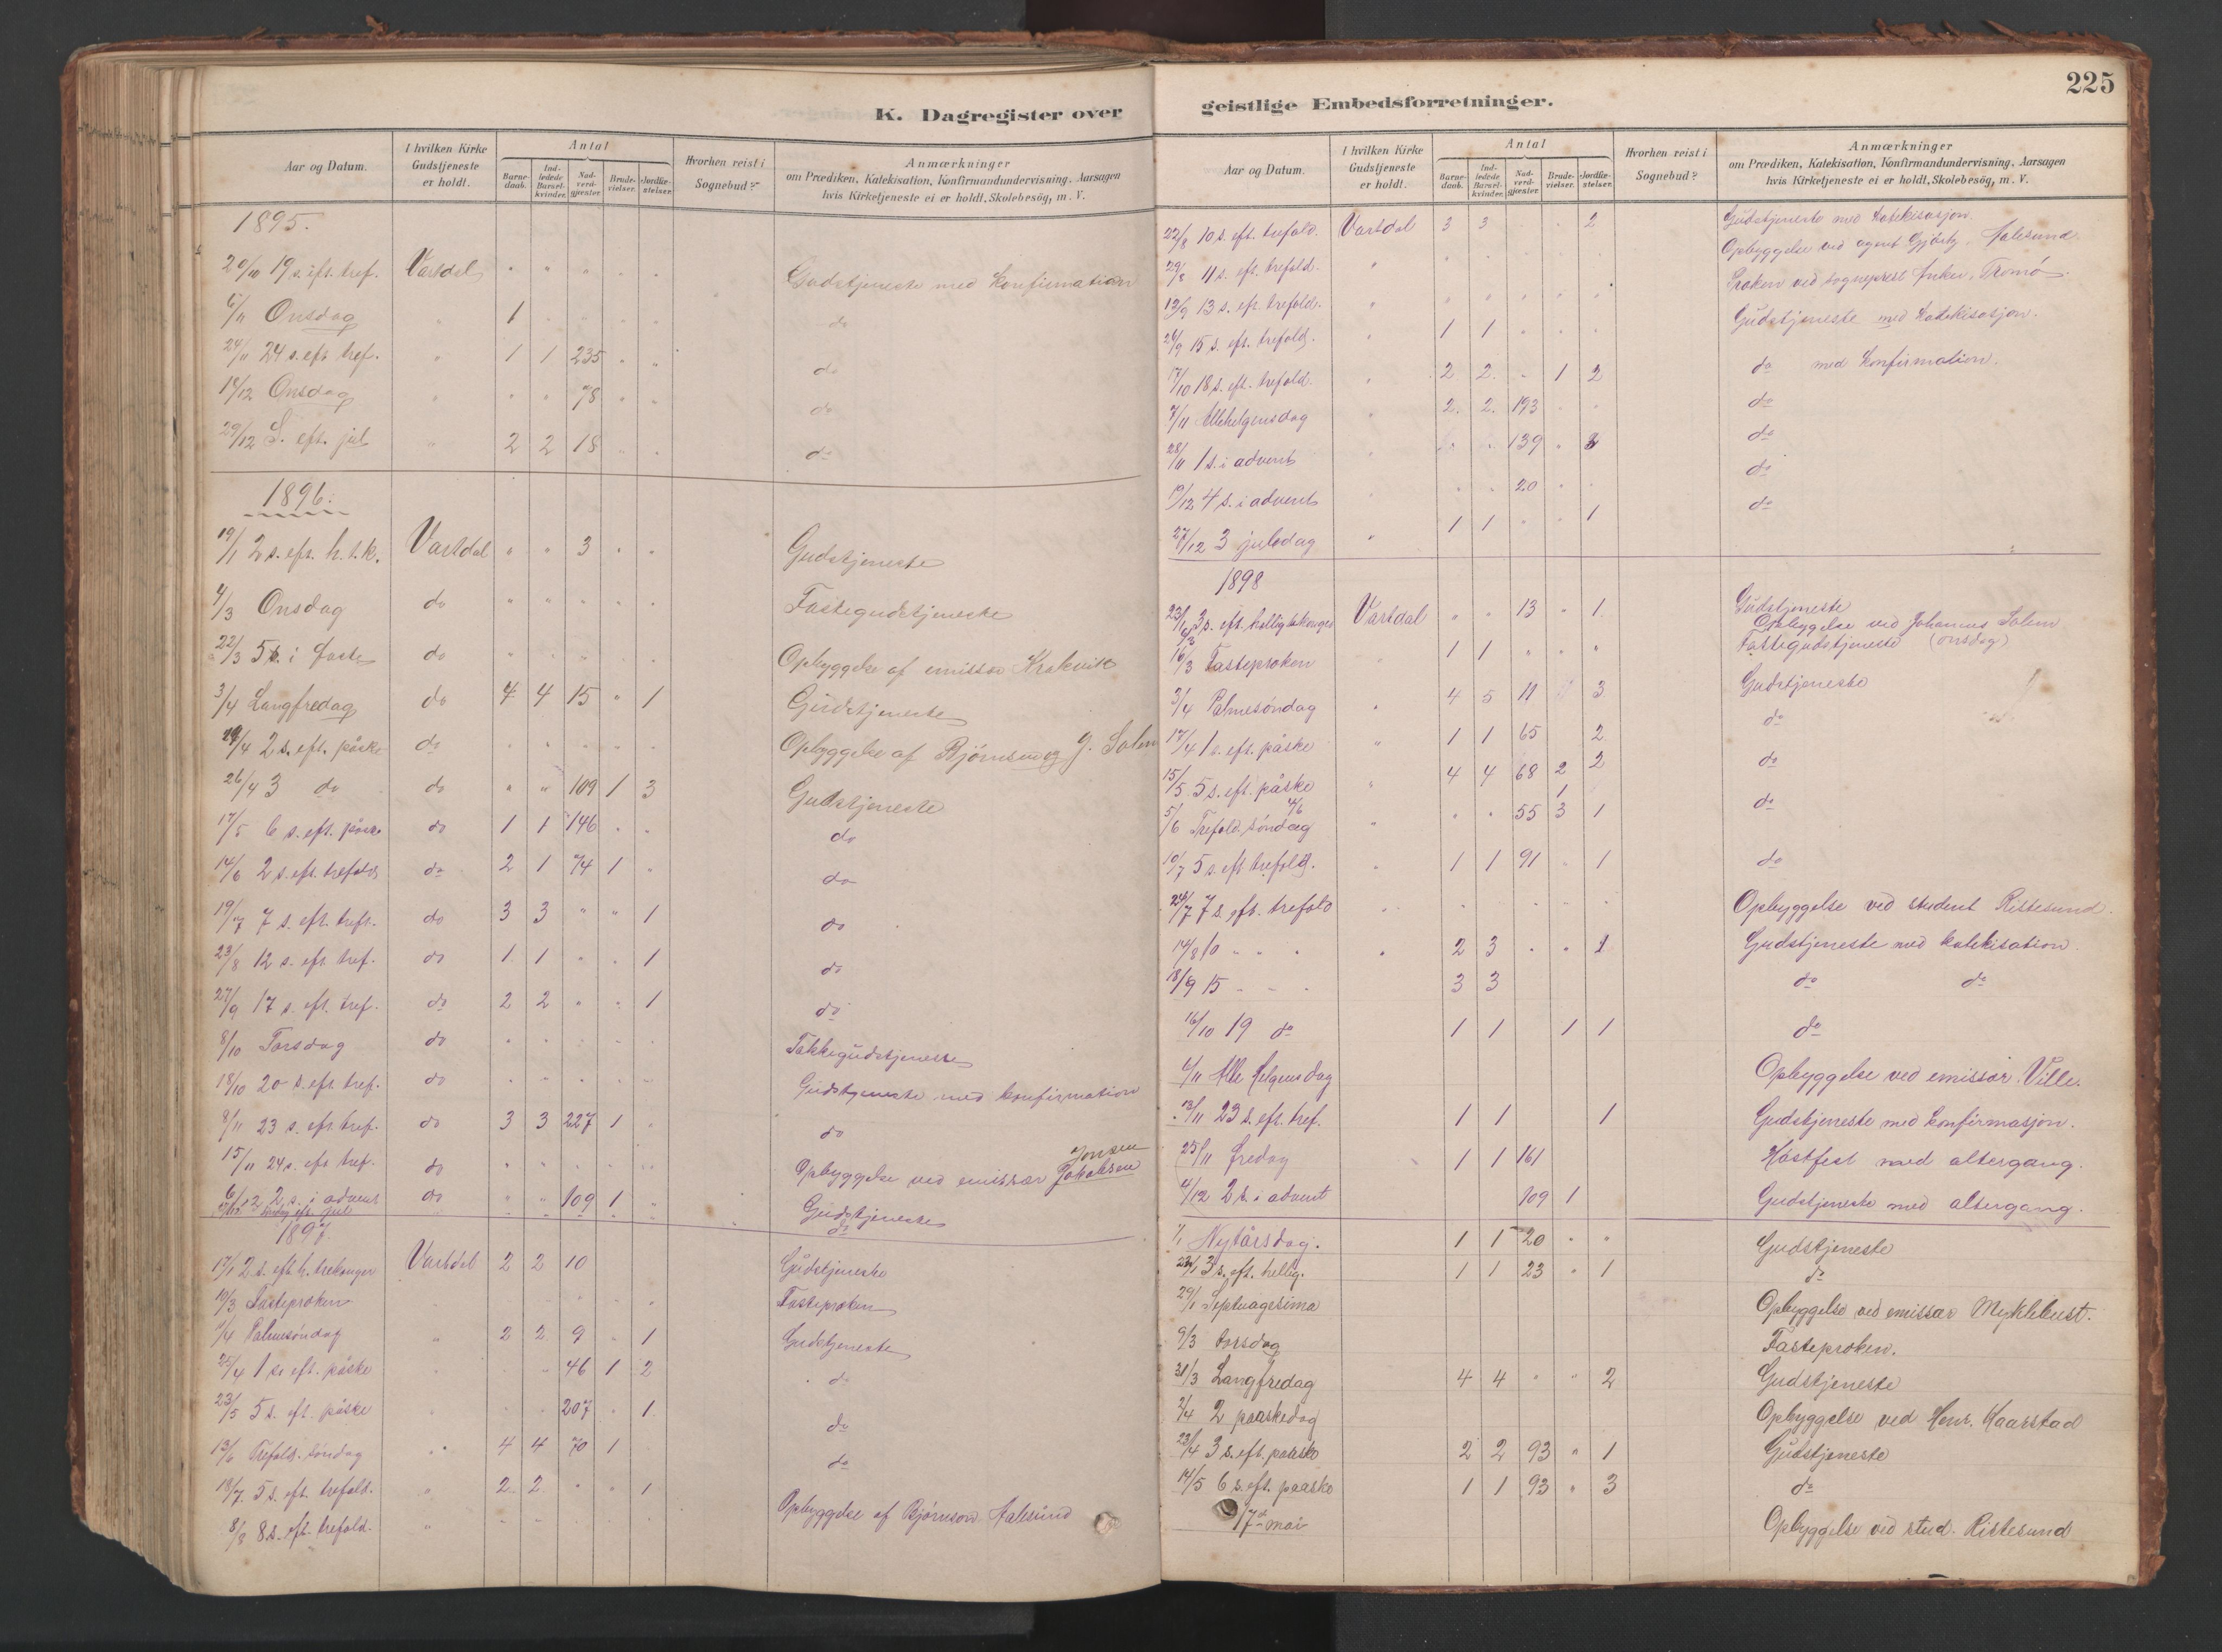 K. Dagregister over
Aar og Datum. I hvilken Kirke Gudstjeneste er holdt. Antal Barnedaab. Indledede Barselkvinder. Nadverdgjæster. Brudevielser. Jordfæstelser. Hvorhen reist i Sognebud? Anmærkninger om Prædiken, Katekisation, Konfirmandundervisning, Aarsagen hvis Kirketjeneste ei er holdt, Skolebesög, m. V.
1895.
20/10 19 s. eft. tref. Vartdal " " " " " Gudstjeneste med Konfirmation
6/11 Onsdag " 1 " " " " do
24/11 24 s. eft. tref. " 1 1 235 " " do
Onsdag " " " 78 " " do
29/12 S. eft. jul " 2 2 18 " " do
1896.
19/1 2 s. eft. h. t. k. Vartdal " " 3 " " Gudstjeneste
4/3 Onsdag do " " " " " Fastegudstjeneste
22/3 5 s. i faste do " " " " " Opbyggelse af emissær Krakvik
3/4 Langfredag do 4 4 15 " 1 Gudstjeneste
19/4 2 s. eft. påske do " " " " " Opbyggelse af Bjørnson og J. Solem
26/4 3 do do " " 109 1 3 Gudstjeneste
17/5 6 s. eft. påske do 1 1 146 " " do
14/6 2 s. eft. trefold do 2 1 74 1 " do
19/7 7 s. eft. tref. do 3 3 " " 1 do
23/8 12 s. eft. tref. do 1 1 " " 1 do
27/9 17 s. eft. tref. do 2 2 " " 1 do
8/10 Torsdag do " " " " " Takkegudstjeneste
18/10 20 s. eft. tref. do " " " " " Gudstjeneste med konfirmation
8/11 23 s. eft. tref. do 3 3 227 1 " do
15/11 24 s. eft. tref. do " " " " " Opbyggelse ved emissær Jakobsen Jonsen
6/12 2 s. i advent do " " 109 1 " Gudstjeneste
søndag eft. jul do
1897.
17/1 2 s. eft. h. trekonger Vartdal 2 2 10 Gudstjeneste
10/3 Fastepræken " " " " " Fastepræken
Palmesöndag " 2 2 9 " 1 Gudstjeneste
25/4 1 s. eft. påske " " " 46 1 2 do
23/5 5 s. eft. påske " " " 207 " 1 do
13/6 Trefold. söndag " 4 4 70 1 do
18/7. 5 s. eft. trefold. " 2 2 " " 1 do
8/8 8 s. eft. trefold. " " " " " " Opbyggelse af Bjørnson Aalesund
geistlige Embedsforretninger.
225
Aar og Datum. I hvilken Kirke Gudstjeneste er holdt. Antal Barnedaab. Indledede Barselkvinder. Nadverdgjæster. Brudevielser. Jordfæstelser. Hvorhen reist i Sognebud? Anmærkninger om Prædiken, Katekisation, Konfirmandundervisning, Aarsagen hvis Kirketjeneste ei er holdt, Skolebesög, m. V.
22/8 10 s. eft. trefold. Vartdal 3 3 " " 2 Gudstjeneste med Katekisasjon.
29/8 11 s. eft. trefold. " " " " " " Opbyggelse ved agent Aalesund.
12/9 13 s. eft. trefold. " " " " " " Præken ved sogneprest Anker, Tromö.
26/9 15 s. eft. trefold. " 1 1 " " " Gudstjeneste med Katekisasjon.
17/10 18 s. eft. trefold. " 2 2 " 1 2 do med konfirmation.
7/11 Allehelgensdag " 2. 2. 193 " " do
28/11 1 s. i advent " " " 139 " do
19/12 4 s. i advent " " " 20 " " do
27/12 3 juledag " 1 1 " " 1 do
1898
23/1 3 s. eft. hellig 3 konger Vartdal " " 13 " 1 Gudstjeneste
Opbyggelse ved Johannes Solem
16/3 Fastepræken " 1 1 " " " Fastegudstjeneste (onsdag)
3/4 Palmesöndag " 4 5 11 3 Gudstjeneste
17/4 1 s. eft. påske " 1 1 65 2 do
15/5 5 s. eft. påske " 4 4 68 2 2 do
5/6 Trefold. söndag " " " 55 3 1 do
10/7 5 s. eft. trefold. " 1 1 91 " 1 do
24/7 7 s. eft. trefold " " " " " " Opbyggelse ved student Ristesund.
14/8 10 " " " " 2 3 " " 1 Gudstjeneste med katekisation.
18/9 15 " " " 3 3 do do
16/10 19 do 1 1 1 1 do
6/11 Alle Helgensdag Opbyggelse ved emissær Ville.
13/11 23 s. eft. tref. 1 1 1 Gudstjeneste med konfirmasjon.
25/11 fredag 1 1 161 Høstfest med altergang.
4/12 2 s. i advent 109 1 Gudstjeneste med altergang.
1/1 Nytårsdag. 1 1 20 " " Gudstjeneste
22/1 3 s. eft. hellig. 1 1 23 " 1 do
29/1 Septuagesima Opbyggelse ved emissær Myklebust.
9/3 torsdag Fastepræken.
31/3 Langfredag 4 4 " " 2 Gudstjeneste
2/4 2 paaskedag Opbyggelse ved Henr. Kaarstad
23/4 3 s. eft. paaske 2 2 93 " 1 Gudstjeneste
14/5 6 s. eft. paaske 1 1 93 " 3 do
17de mai Opbyggelse ved stud. Ristesund